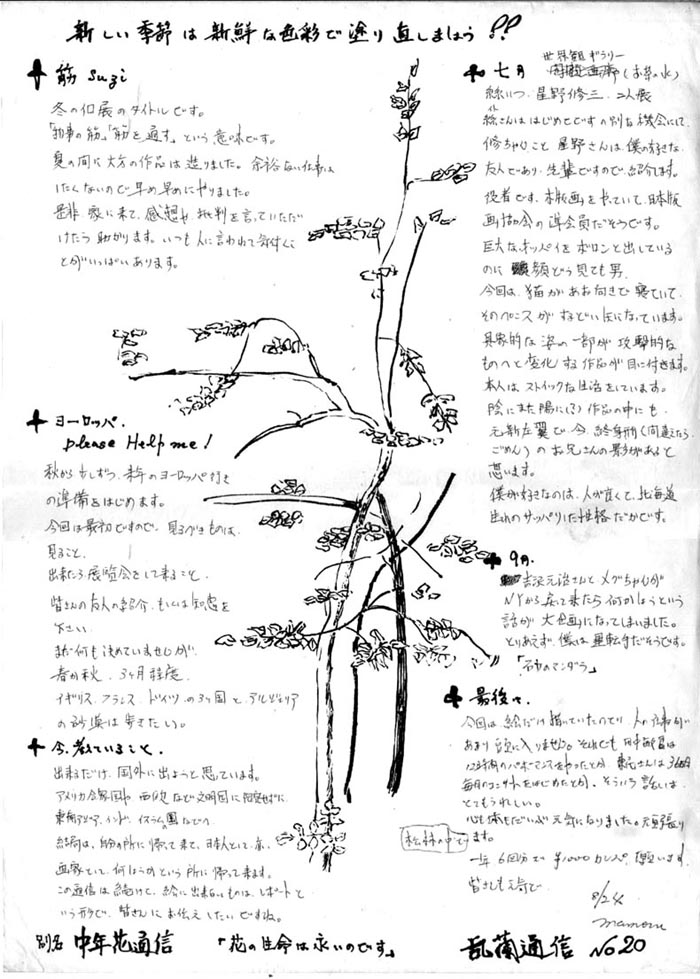 新しい季節は新鮮な色彩で塗り直しましょう!!
筋 suzi
冬の個展のタイトルです。
「物事の筋」「筋を通す」という意味です。
夏の間に大方の作品は造りました。余裕ない仕事は
したくないので早め早めにやりました。
是非 家に来て、感想や批判を言っていただ
けたら助かります。いつも人に言われて気付くこ
とがいっぱいあります。
ヨーロッパ.
please Help me!
秋から少しずつ、来年のヨーロッパ行き
の準備をはじめます。
今回は最初ですので、見るべきものは、
見ること、
出来たら展覧会をして来ること、
皆さんの友人の紹介、もしくは知恵を
下さい。
まだ何も決めていませんが、
春か秋、3ヶ月程度、
イギリス、フランス、ドイツ、の3ヶ国と、アルジェリア
の砂漠は歩きたい。
今、考えていること、
出来るだけ、国外に出ようと思っています。
アメリカ合衆国や、西欧など文明国に
東南アジア、インド、イスラムの国などへ
結局は、自分の所に帰って来て、日本人として、
画家として、何しようかという所に帰って来ます。
この通信は続けて、絵に出来ないものは、レポートと
いう形で、皆さんにお伝えしたいですね。
七月 世界観ギャラリー (お茶の水)
絲いつ、星野修三、二人展
絲さんははじめてですので別な機会にして、
修ちゃんこと 星野さんは、僕の好きな、
友人であり、先輩ですので、紹介します。
役者です、木版画をやっていて、日本版
画協会の準会員だそうです。
巨大なオッパイをボロンと出している
のに 顔どう見ても男、
今回は、猫があお向きで寝ていて、
そのペニスが
具象的な姿の一部が攻撃的な
ものへと変化する作品が目に付きます。
本人はストイックな生活をしています。
陰にまた陽に(?)作品の中にも、
元新左翼で、今、終身刑(間違ったら
ごめん)のお兄さんの影があると
思います。
僕が好きなのは、人が良くて、北海道
生れのサッパリした性格だからです。
9月.
吉沢元治さんとメグちゃんが
NYから戻って来たら何かしようという
話が 大企画になってしまいました。
とりあえず、僕は運転手だそうです。
「マンダラ」
最後に.
今回は絵だけ描いていたので、人の
あまり目に入りません。それでも田中
12時間のパーホーマンスをやったとか、
毎月のコンサートをはじめたとか、そういう話しは、
とてもうれしい。
心も体もだいぶ元気になりました。頑張り
ます。
松林の中で
一年 6回分で ¥1000 カンパ お願います。
皆さんも元気で
8/24
mamoru
別名 中年花通信 「花の生命は永いのです」 乱蘭通信 No20